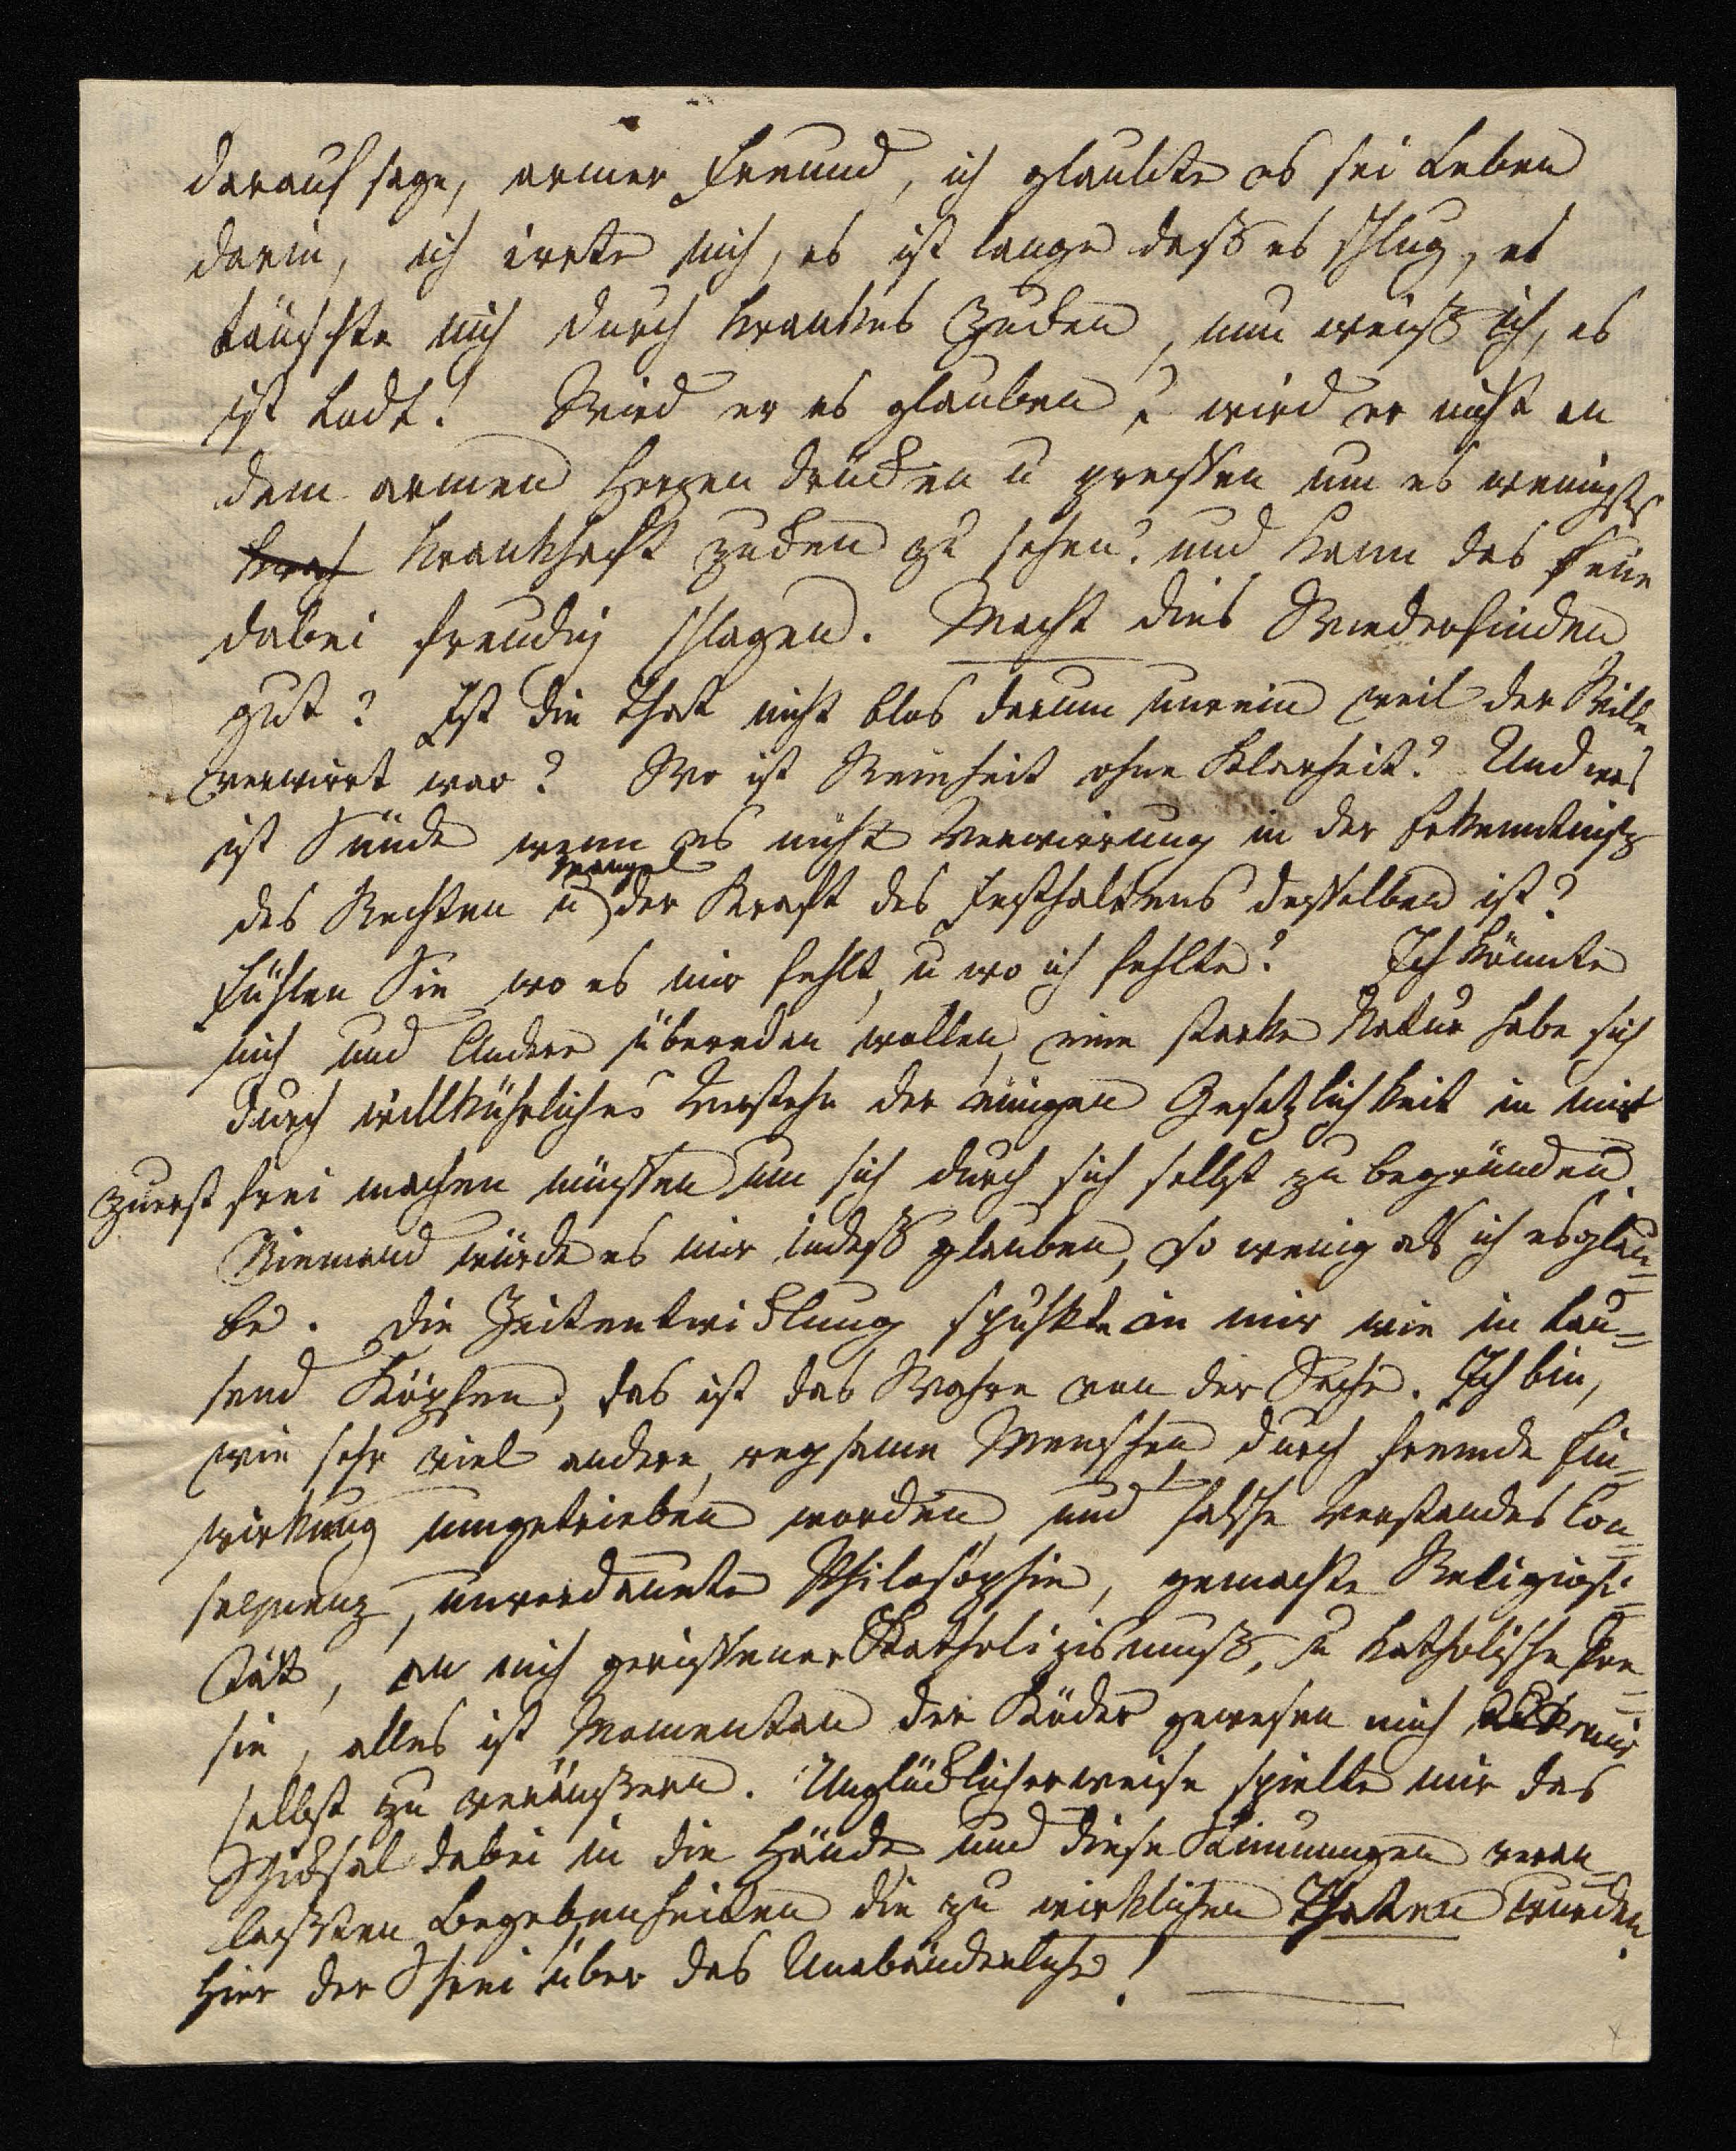 darauf sage, armer Freund, ich glaubte es sei Leben
darin, ich irrte mich, es ist lange daß es schlug, es
täuschte mich durch krankes Zucken, nun weiß ich, es
ist todt! Wird er es glauben? wird er nicht an
dem armen Herzen drücken u pressen um es wenigsts
krankhaft zucken zu sehen? und kann das seine
dabei freudig schlagen. Macht dies Wiederfinden
gut? Ist die That nicht blos darum unrein weil der Wille
verwirrt war? Wo ist Reinheit ohne Klarheit? Und was
ist Sünde wenn es nicht Verwirrung in der Erkenntniß
des Rechten u Mangel der Kraft des Festhaltens desselben ist?
Fühlen Sie wo es mir fehlt, u wo ich fehlte? Ich könnte
mich und Andere überreden wollen, eine starke Natur habe sich
durch willkührliches Verstehn der ewigen Gesetzlichkeit in mir
zuerst frei machen müssen um sich durch sich selbst zu begründen.
Niemand würde es mir indeß glauben, so wenig als ich es glau=
be. Die Zeitentwicklung spukte in mir wie in tau=
send Köpfen, das ist das Wahre von der Sache. Ich bin,
wie sehr viel andere, regsame Menschen durch fremde Ein=
wirkung umgetrieben worden, und falsche Verstandes Con=
sequenz, unverdaute Philosophie, gemachte Religiosi=
tät, an mich gerissener Katholizismuß, u katholische Poe=
sie, alles ist Momentan der Köder gewesen mich mir
selbst zu veräußern. Unglücklicherweise spielte mir das
Schicksal dabei in die Hände und diese Stimmungen veran=
laßten Begebenheiten die zu wirklichen Thaten wurden.
Hier der Schrei über das Unabänderliche!